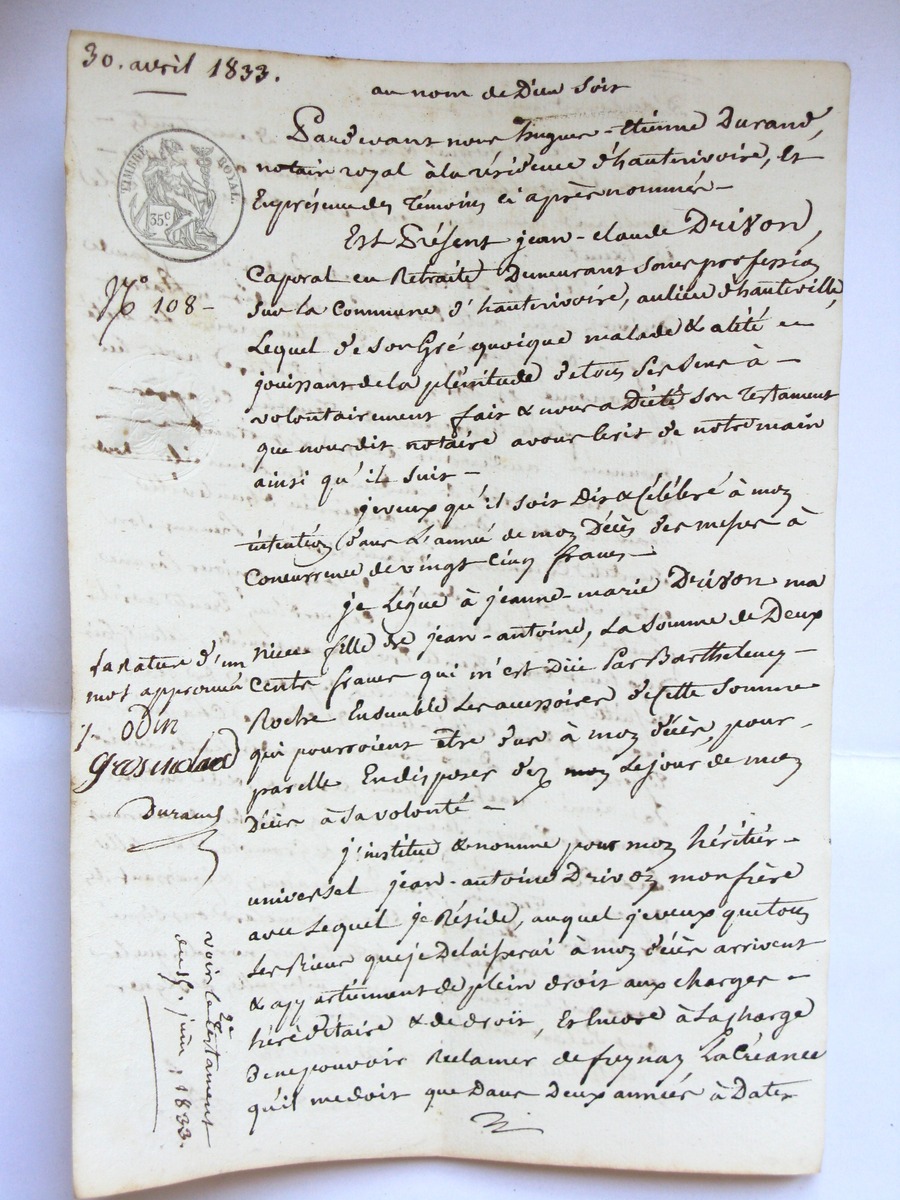 30. avril 1833.
au nom de Dieu soit
Pardevant nous hugues-Etienne Durand,
notaire royal à la résidence d'hauterivoire, Et
En présence des Témoins ci après nommés —
TIMBRE ROYAL.
35c
Est Présent jean-claude Drivon,
N° 108 —
Caporal en Retraite Demeurant sans profession
sur la Commune d'hauterivoire, au lieu d'hauteville,
Lequel de son Gré quoique malade & alité —
jouissant de la plénitude de tous ses sens à —
volontairement fait & nous a Dicté son Testament
que nous dit notaire avons Ecrit de notre main
ainsi qu'il suit —
je veux qu'il soit Dit & Célébré à mon
intention dans l'année de mon Décès des messes à
Concurrence de vingt cinq francs —
je Lègue à jeanne-marie Drivon ma
nièce fille de jean-antoine, la somme de Deux
Cents francs qui m'est Düe Par Barthelemy —
Roche Ensemble les accessoires de Cette somme
qui pourroient être dus à mon décès, pour —
par elle En disposer dez le jour de mon
Décès à sa volonté —
La Rature d'un
mot approuvée
j. odin
Durand
j'institue & nomme pour mon héritier —
universel jean-antoine Drivon, mon frère
avec Lequel je Réside, auquel je veux que tous
Les Biens que je Delaisserai à mon décès arrivent
& appartiennent de plein droit aux charges —
héréditaire & de droit, Et Encore à La charge
De ne pouvoir Reclamer de La Créance
qu'il me doit que Dans Deux années à Dater
voir le 2e Testament
du 15. juin, 1833.